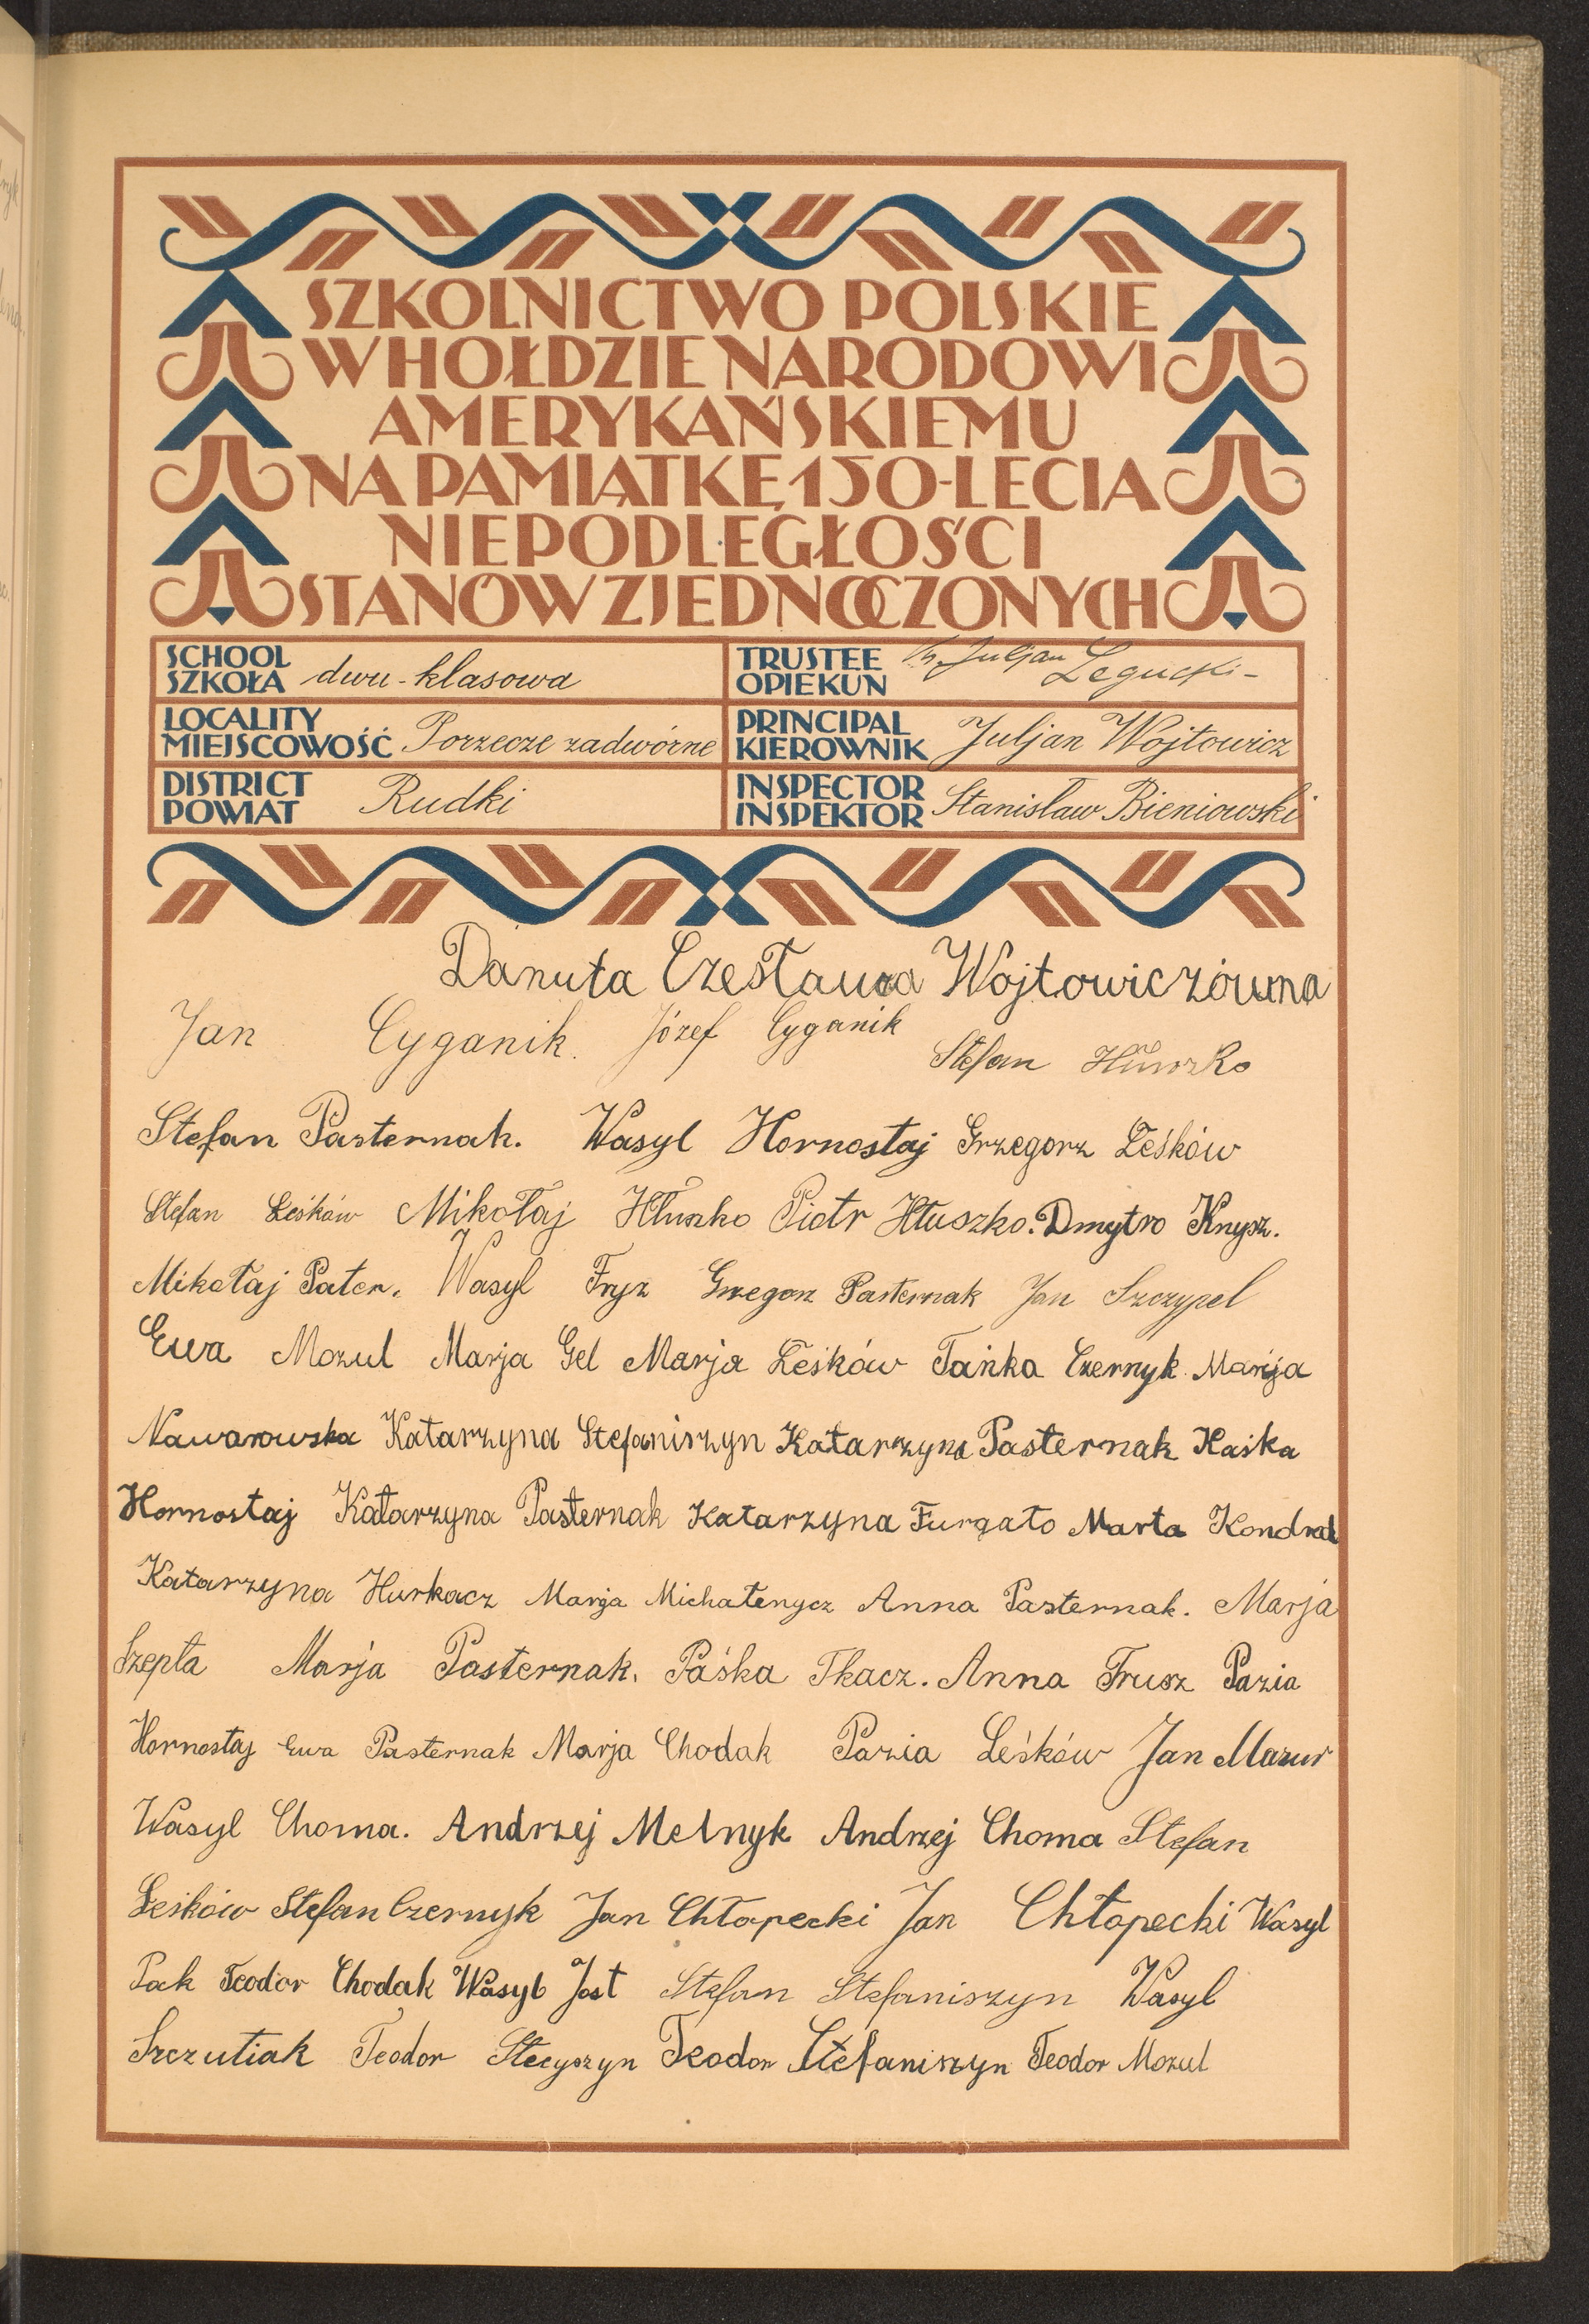 SZKOLNICTWO POLSKIE
W HOŁDZIE NARODOWI
AMERYKAŃSKIEMU
NA PAMIĄTKĘ 150-LECIA
NIEPODLEGŁOŚCI
STANÓW ZJEDNOCZONYCH
SCHOOL
SZKOŁA dwu-klasowa
TRUSTEE
OPIEKUN Juljan Legucki
LOCALITY
MIEJSCOWOŚĆ Porzecze zadwórne
PRINCIPAL
KIEROWNIK Juljan Wojtowicz
DISTRICT
POWIAT Rudki
INSPECTOR
INSPEKTOR Stanisław Bieniowski
Danuta Czesława Wojtowiczówna
Jan Cyganik. Józef Cyganik
Stefan
Stefan Pasternak. Wasyl Hornostaj Grzegorz Leśków
Stefan Leśków Mikołaj Hłuszko Piotr Hłuszko. Dmytro Knysz.
Mikołaj Pater. Wasyl Fryz Grzegorz Pasternak Jan Szczypel
Ewa Mozul Marja Gel Marja Leśków Tańka Czernyk Marija
Nawarowska Katarzyna Stefaniszyn Katarzyna Pasternak Kaśka
Hornostaj Katarzyna Pasternak Katarzyna Furgato Marta Kondrad
Katarzyna Hurkacz Marija Michatenycz Anna Pasternak. Marja
Szepta Marja Pasternak. Paśka Tkacz. Anna Frusz Pazia
Hornostaj Ewa Pasternak Marja Chodak Pazia Leśków Jan Mazur
Wasyl Choma. Andrzej Melnyk Andrzej Choma Stefan
Leśków Stefan Czernyk Jan Chłopecki Jan Chłopecki Wasyl
Pak Teodor Chodak Wasyl Jost Stefan Stefaniszyn Wasyl
Szczutiak Teodor Stecyszyn Teodor Stefaniszyn Teodor Mozul